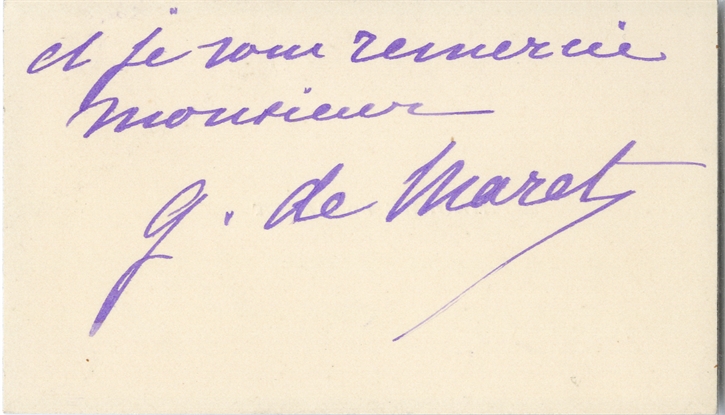 et je vous remercie
Monsieur
G. de Maret